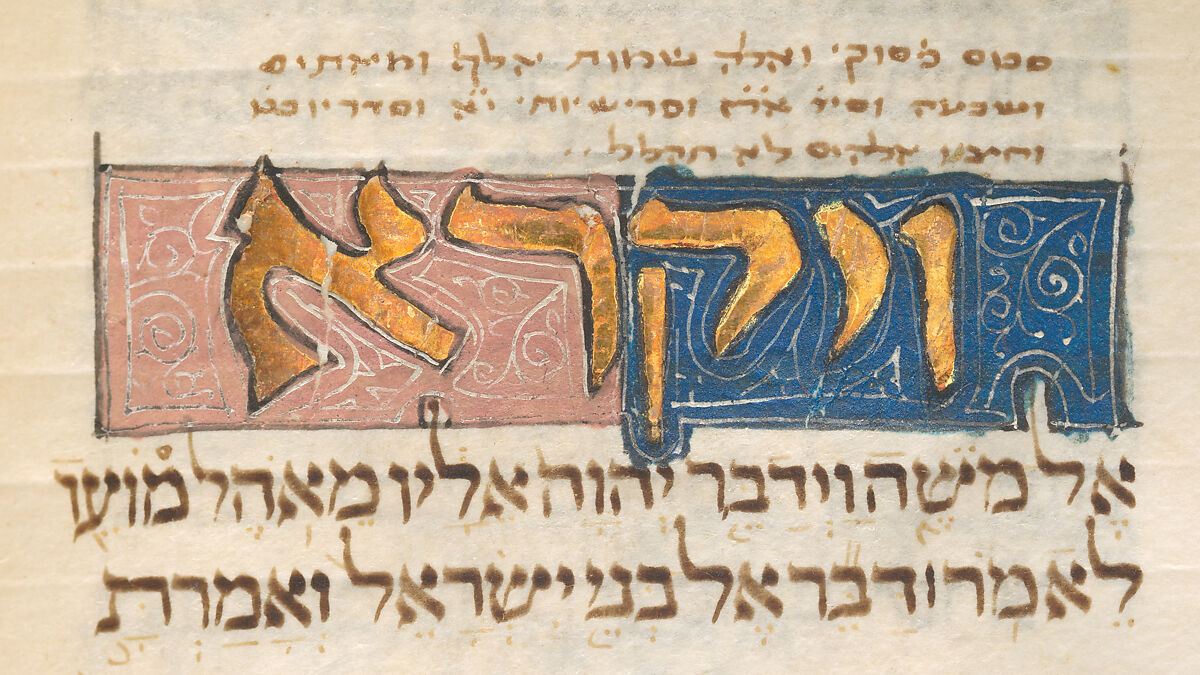 סכום פסוקי ואלה שמות אלף ומאתים
ושבעה וסי׳ ופרשיות׳ י״א וסדריו כ״ט
אלהים לא תקלל
ויקרא
אֶל מֹשֶׁה וַיְדַבֵּר יְהוָה אֵלָיו מֵאֹהֶל מוֹעֵד
לֵאמֹר דַּבֵּר אֶל בְּנֵי יִשְׂרָאֵל וְאָמַרְתָּ